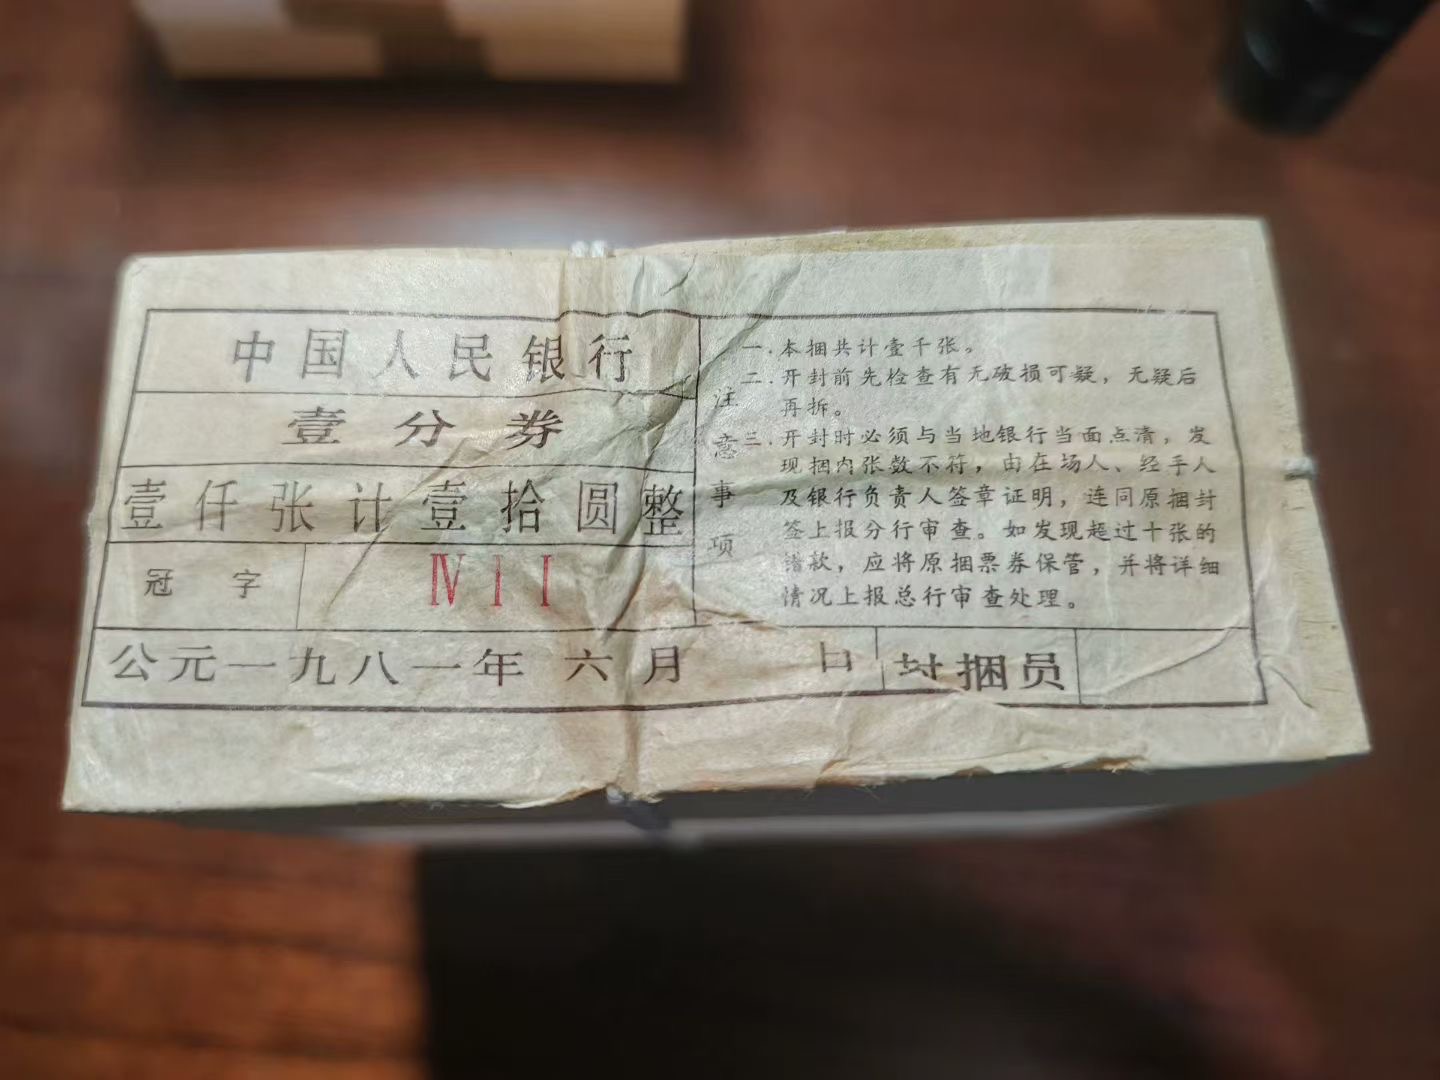 中国人民银行
壹分券
壹仟张计壹拾圆整
冠字 Ⅳ Ⅰ Ⅰ
公元一九八一年 六月 日 封捆员
注意事项
一.本捆共计壹千张。
二.开封前先检查有无破损可疑，无疑后
再拆。
三.开封时必须与当地银行当面点清，发
现捆内张数不符，由在场人、经手人
及银行负责人签章证明，连同原捆封
签上报分行审查。如发现超过十张的
错款，应将原捆票券保管，并将详细
情况上报总行审查处理。